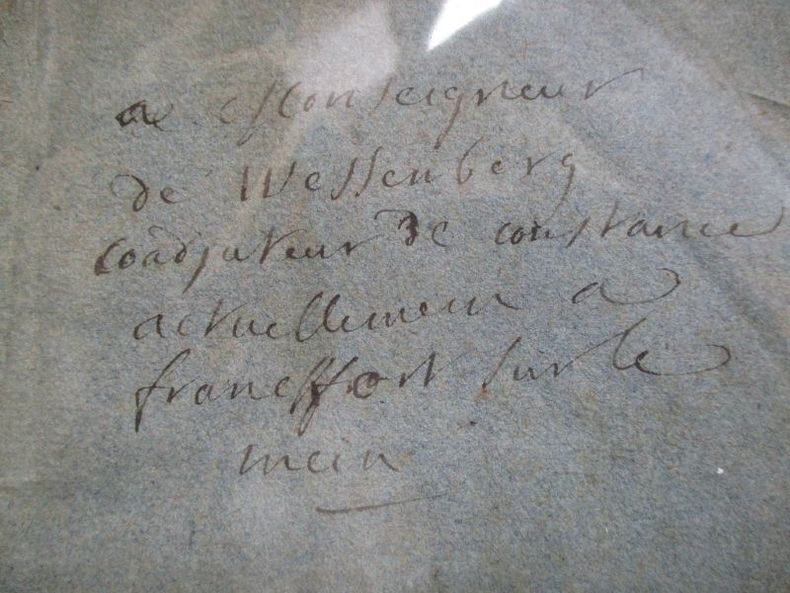 a Monseigneur
de Wessenberg
coadjuteur de constance
actuellement a
francffort sur le
mein